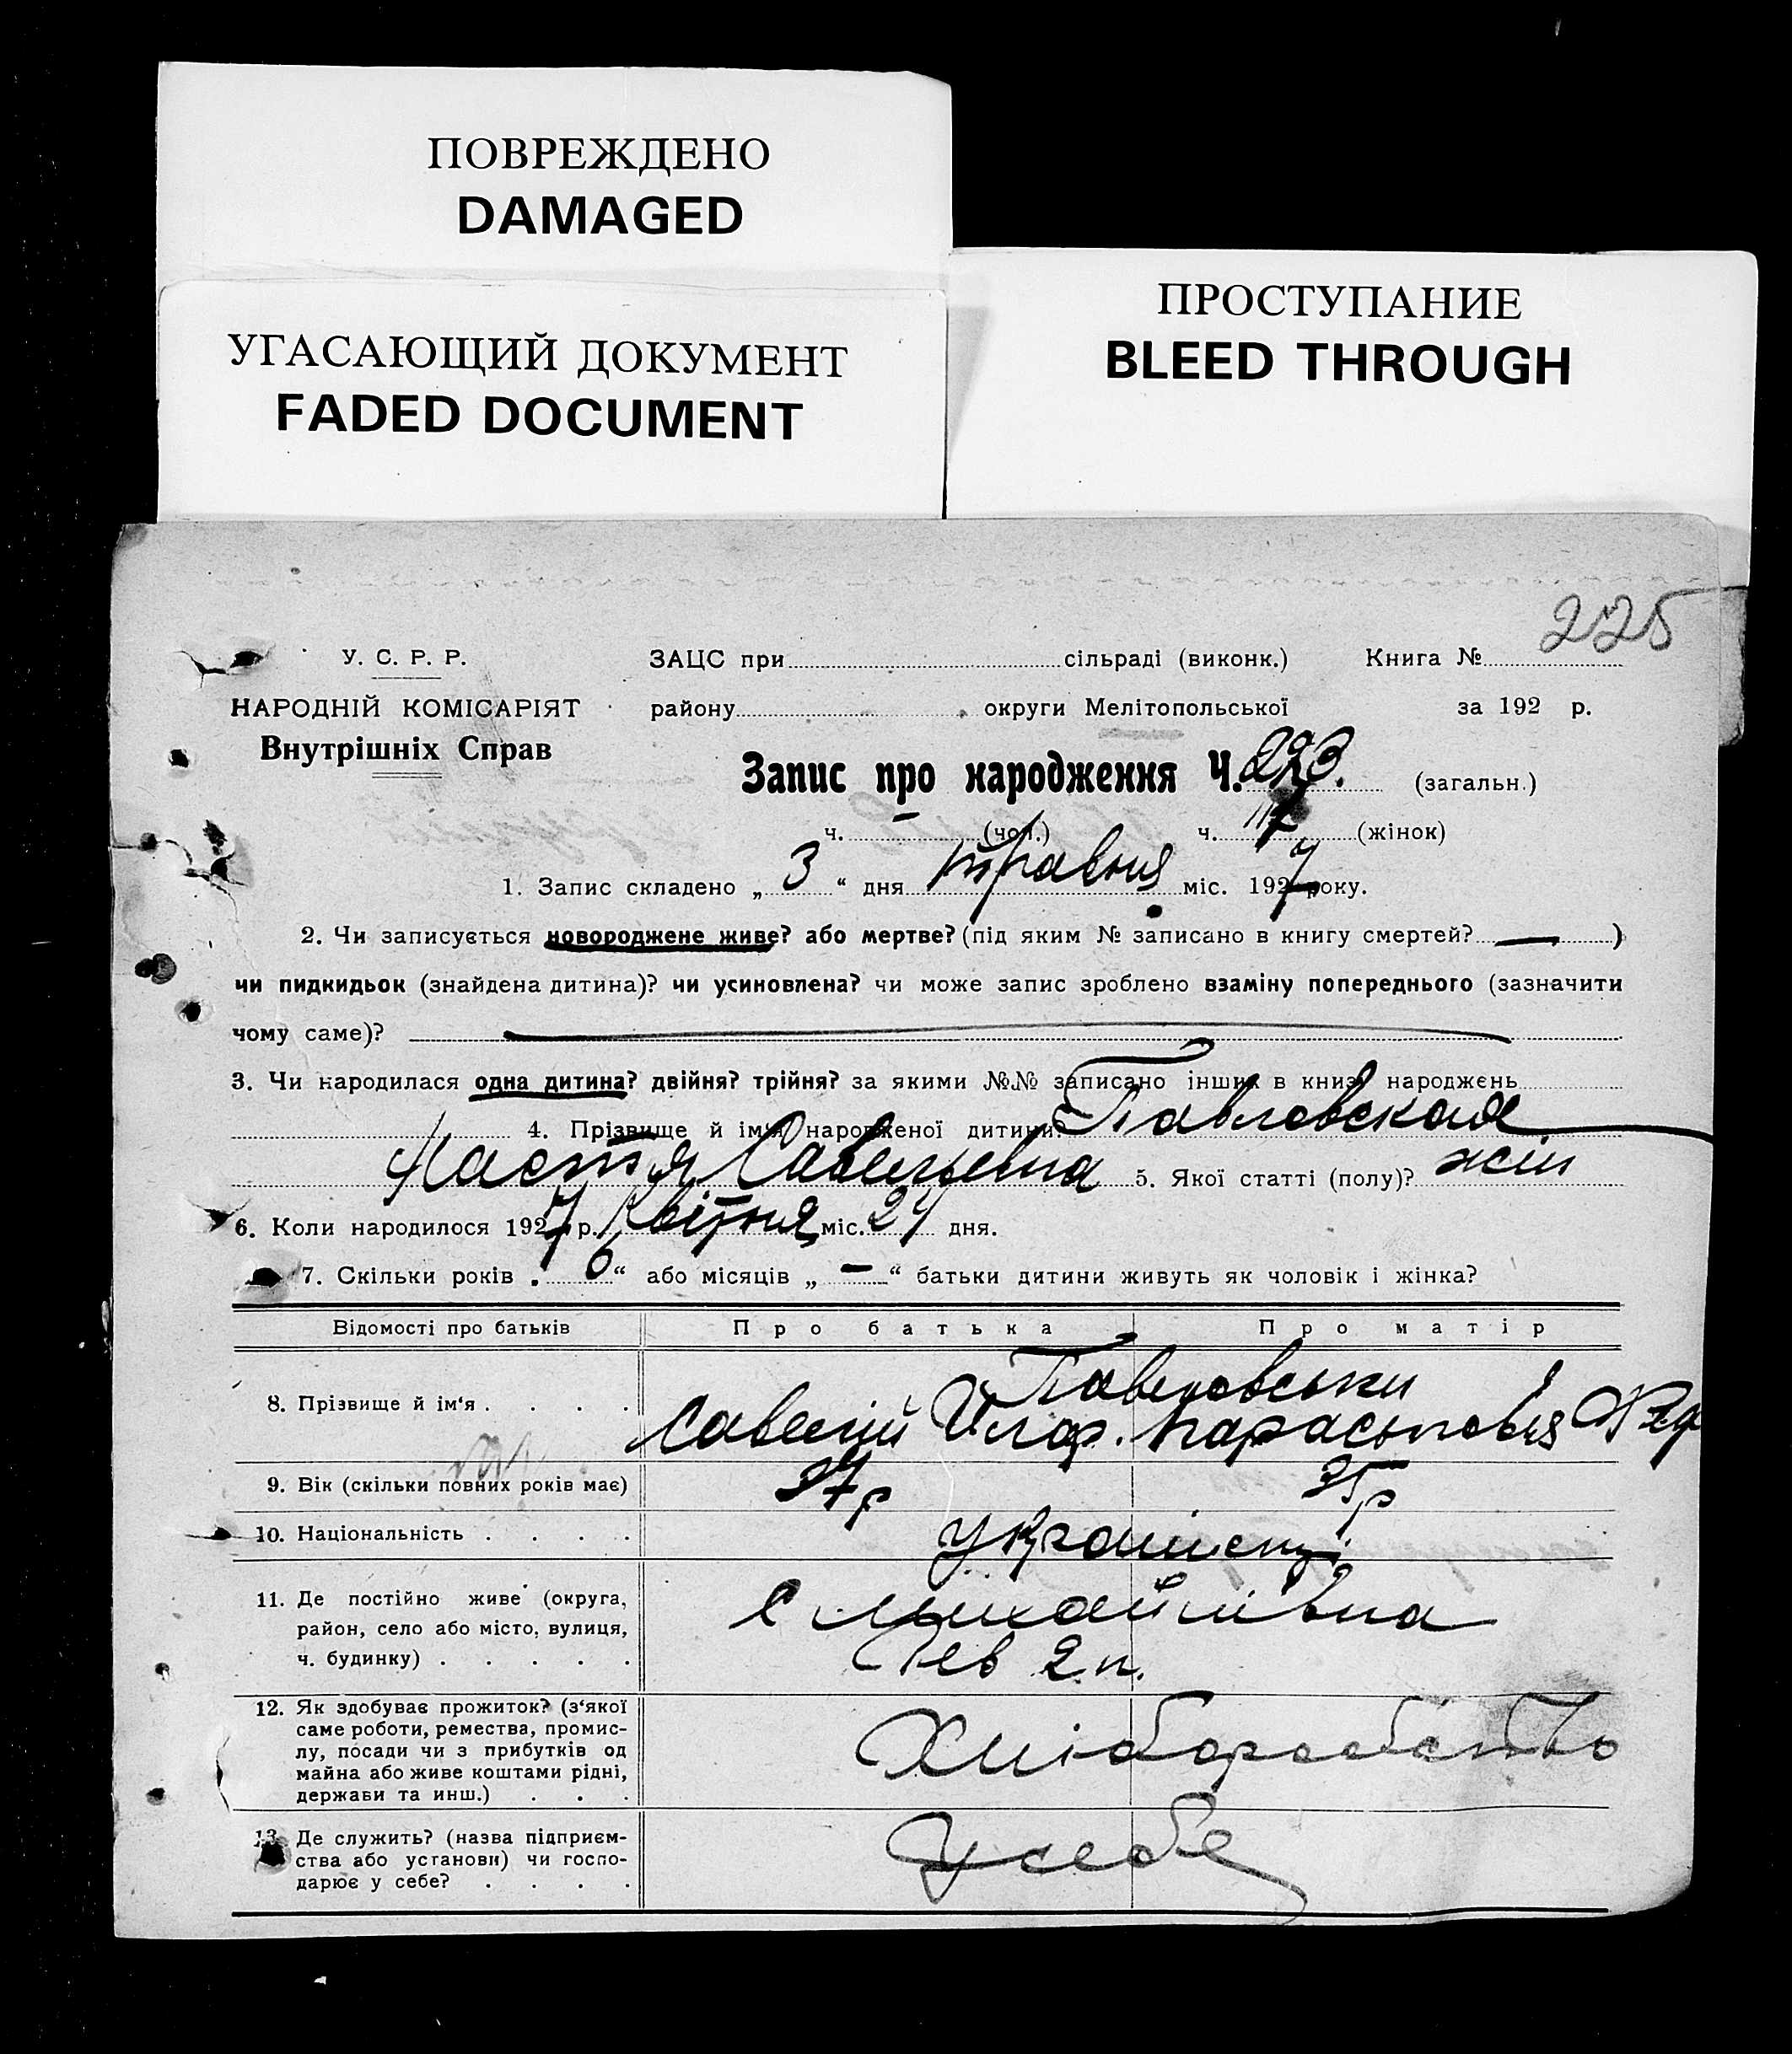 ПОВРЕЖДЕНО
DAMAGED
УГАСАЮЩИЙ ДОКУМЕНТ
FADED DOCUMENT
ПРОСТУПАНИЕ
BLEED THROUGH
225
У. С. Р. Р. ЗАЦС при сільраді (виконк.) Книга №
НАРОДНІЙ КОМІСАРІЯТ району округи Мелітопольської за 192 р.
Внутрішніх Справ
Запис про народження Ч. 223. (загальн.)
ч. — (чол.) ч. 117 (жінок)
1. Запис складено „ 3 “ дня травня міс. 1927 року.
2. Чи записується новороджене живе? або мертве? (під яким № записано в книгу смертей? — )
чи пидкидьок (знайдена дитина)? чи усиновлена? чи може запис зроблено взаміну попереднього (зазначити
чому саме)?
3. Чи народилася одна дитина? двійня? трійня? за якими №№ записано інших в книзі народжень
4. Прізвище й ім'я народженої дитини? Павловская
Настя Савельевна 5. Якої статті (полу)? жін
6. Коли народилося 1927 р. Квітня міс. 24 дня.
7. Скільки років „ 6 “ або місяців „ — “ батьки дитини живуть як чоловік і жінка?
Відомості про батьків Про батька Про матір
Павловськи
8. Прізвище й ім'я . . . . Савелій
9. Вік (скільки повних років має) 37р 35р
10. Національність . . . . Українці
11. Де постійно живе (округа, район, село або місто, вулиця, ч. будинку) . . . . . с Михайлівна
Рев 2 п.
12. Як здобуває прожиток? (з'якої саме роботи, ремества, промислу, посади чи з прибутків од майна або живе коштами рідні, держави та инш.) . . . Хліборобство
13. Де служить? (назва підприємства або установи) чи господарює у себе? . . . . У себе